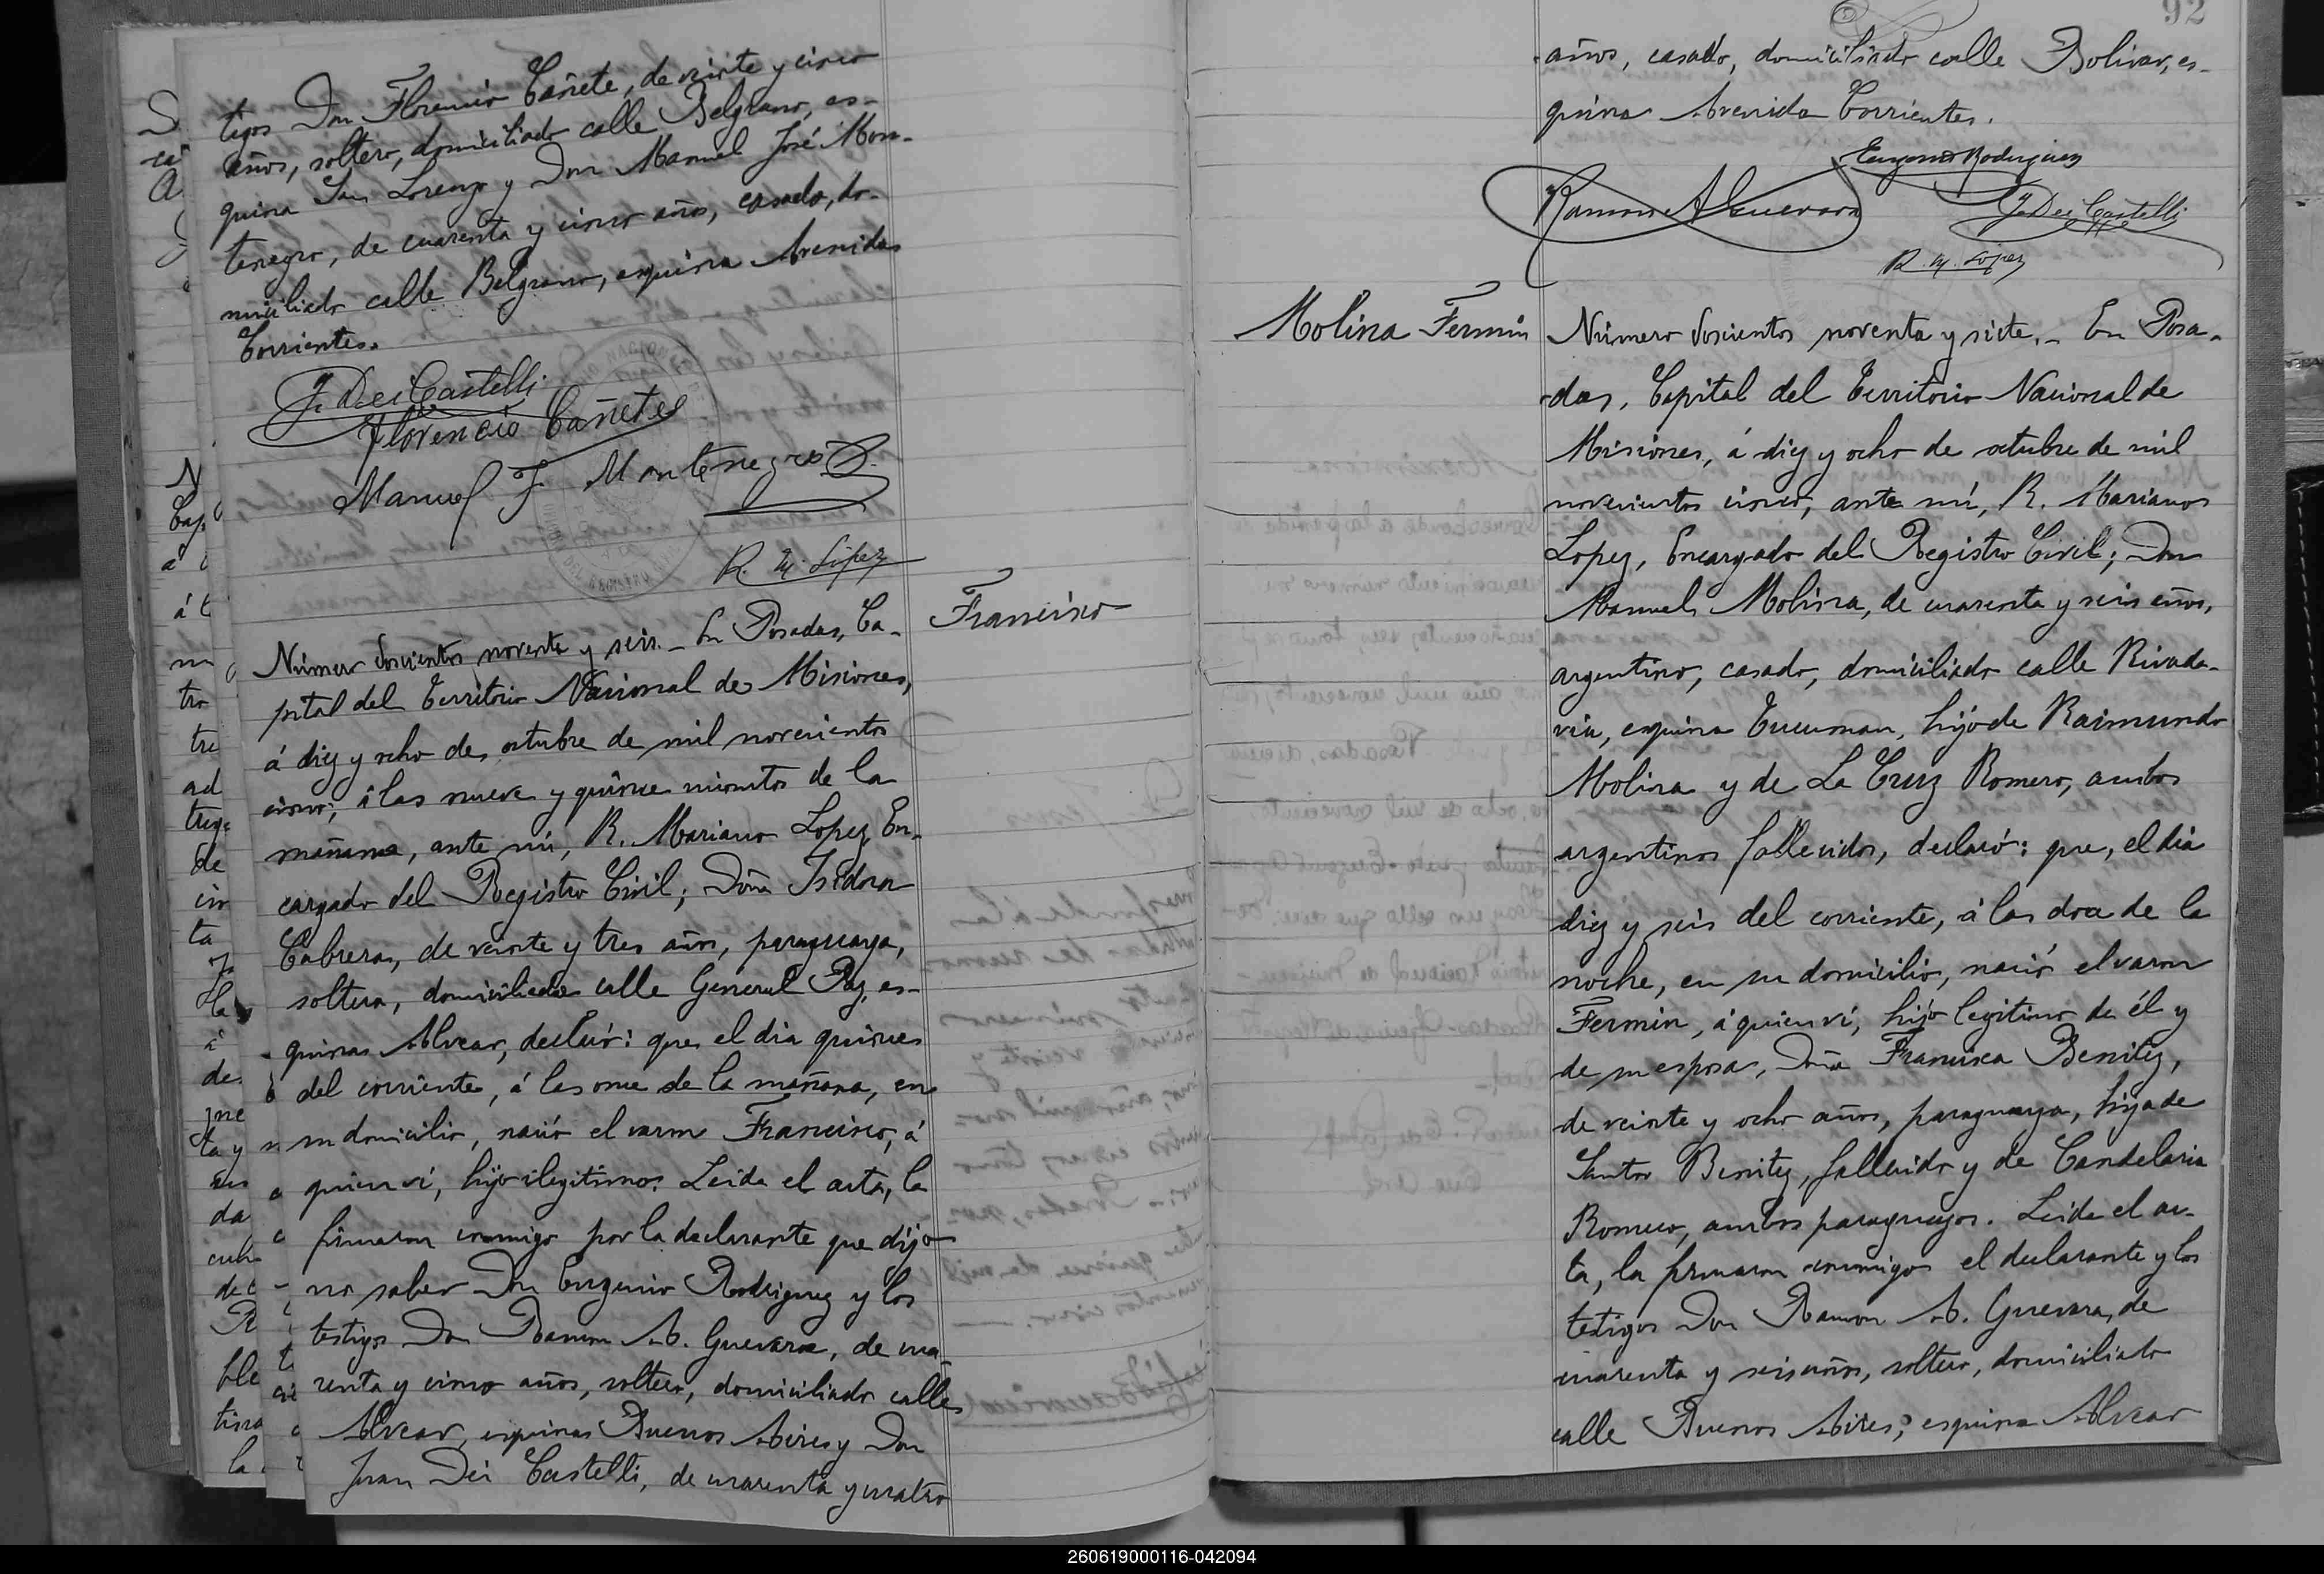 tigos Don Florencio Cañete, de veinte y cinco
años, soltero, domiciliado calle Belgrano, es-
quina San Lorenzo y Don Manuel José Mon-
tenegro, de cuarenta y cinco años, casado, do-
miciliado calle Belgrano, esquina Avenida
Corrientes.
J. Dei Castelli
Florencio Cañete
Manuel J. Montenegro
R. M. López
Francisco
Número doscientos noventa y seis. _ En Posadas, Ca-
pital del Territorio Nacional de Misiones,
á diez y ocho de octubre de mil novecientos
cinco; á las nueve y quince minutos de la
mañana, ante mí, R. Mariano Lopez, En-
cargado del Registro Civil; Doña Isidora
Cabrera, de veinte y tres años, paraguaya,
soltera, domiciliada calle General Paz, es-
quina Alvear, declaró: que el dia quince
del corriente, á las once de la mañana, en
su domicilio, nació el varon Francisco, á
quien ví, hijo ilegitimo. Leida el acta, la
firmaron conmigo por la declarante que dijo
no saber Don Eugenio Rodriguez y los
testigos Don Ramon A. Guevara, de cua-
renta y cinco años, soltero, domiciliado calle
Alvear, esquina Buenos Aires y Don
Juan Dei Castelli, de cuarenta y cuatro
92
años, casado, domiciliado calle Bolivar, es-
quina Avenida Corrientes.
Eugenio Rodriguez
Ramon A Guevara
J. Dei Castelli
R. M. López
Molina Fermin
Número doscientos noventa y siete. _ En Posa-
das, Capital del Territorio Nacional de
Misiones, á diez y ocho de octubre de mil
novecientos cinco, ante mí, R. Mariano
Lopez, Encargado del Registro Civil; Don
Manuel Molina, de cuarenta y seis años,
argentino, casado, domiciliado calle Rivada-
via, esquina Tucuman, hijo de Raimundo
Molina y de La Cruz Romero, ambos
argentinos fallecidos, declaró: que, el dia
diez y seis del corriente, á las doce de la
noche, en su domicilio, nació el varon
Fermin, á quien ví, hijo legitimo de él y
de su esposa, Doña Francisca Benitez,
de veinte y ocho años, paraguaya, hija de
Santos Benitez, fallecido y de Candelaria
Romero, ambos paraguayos. Leida el ac-
ta, la firmaron conmigo el declarante y los
testigos Don Ramon A. Guevara, de
cuarenta y seis años, soltero, domiciliado
calle Buenos Aires, esquina Alvear
260619000116-042094